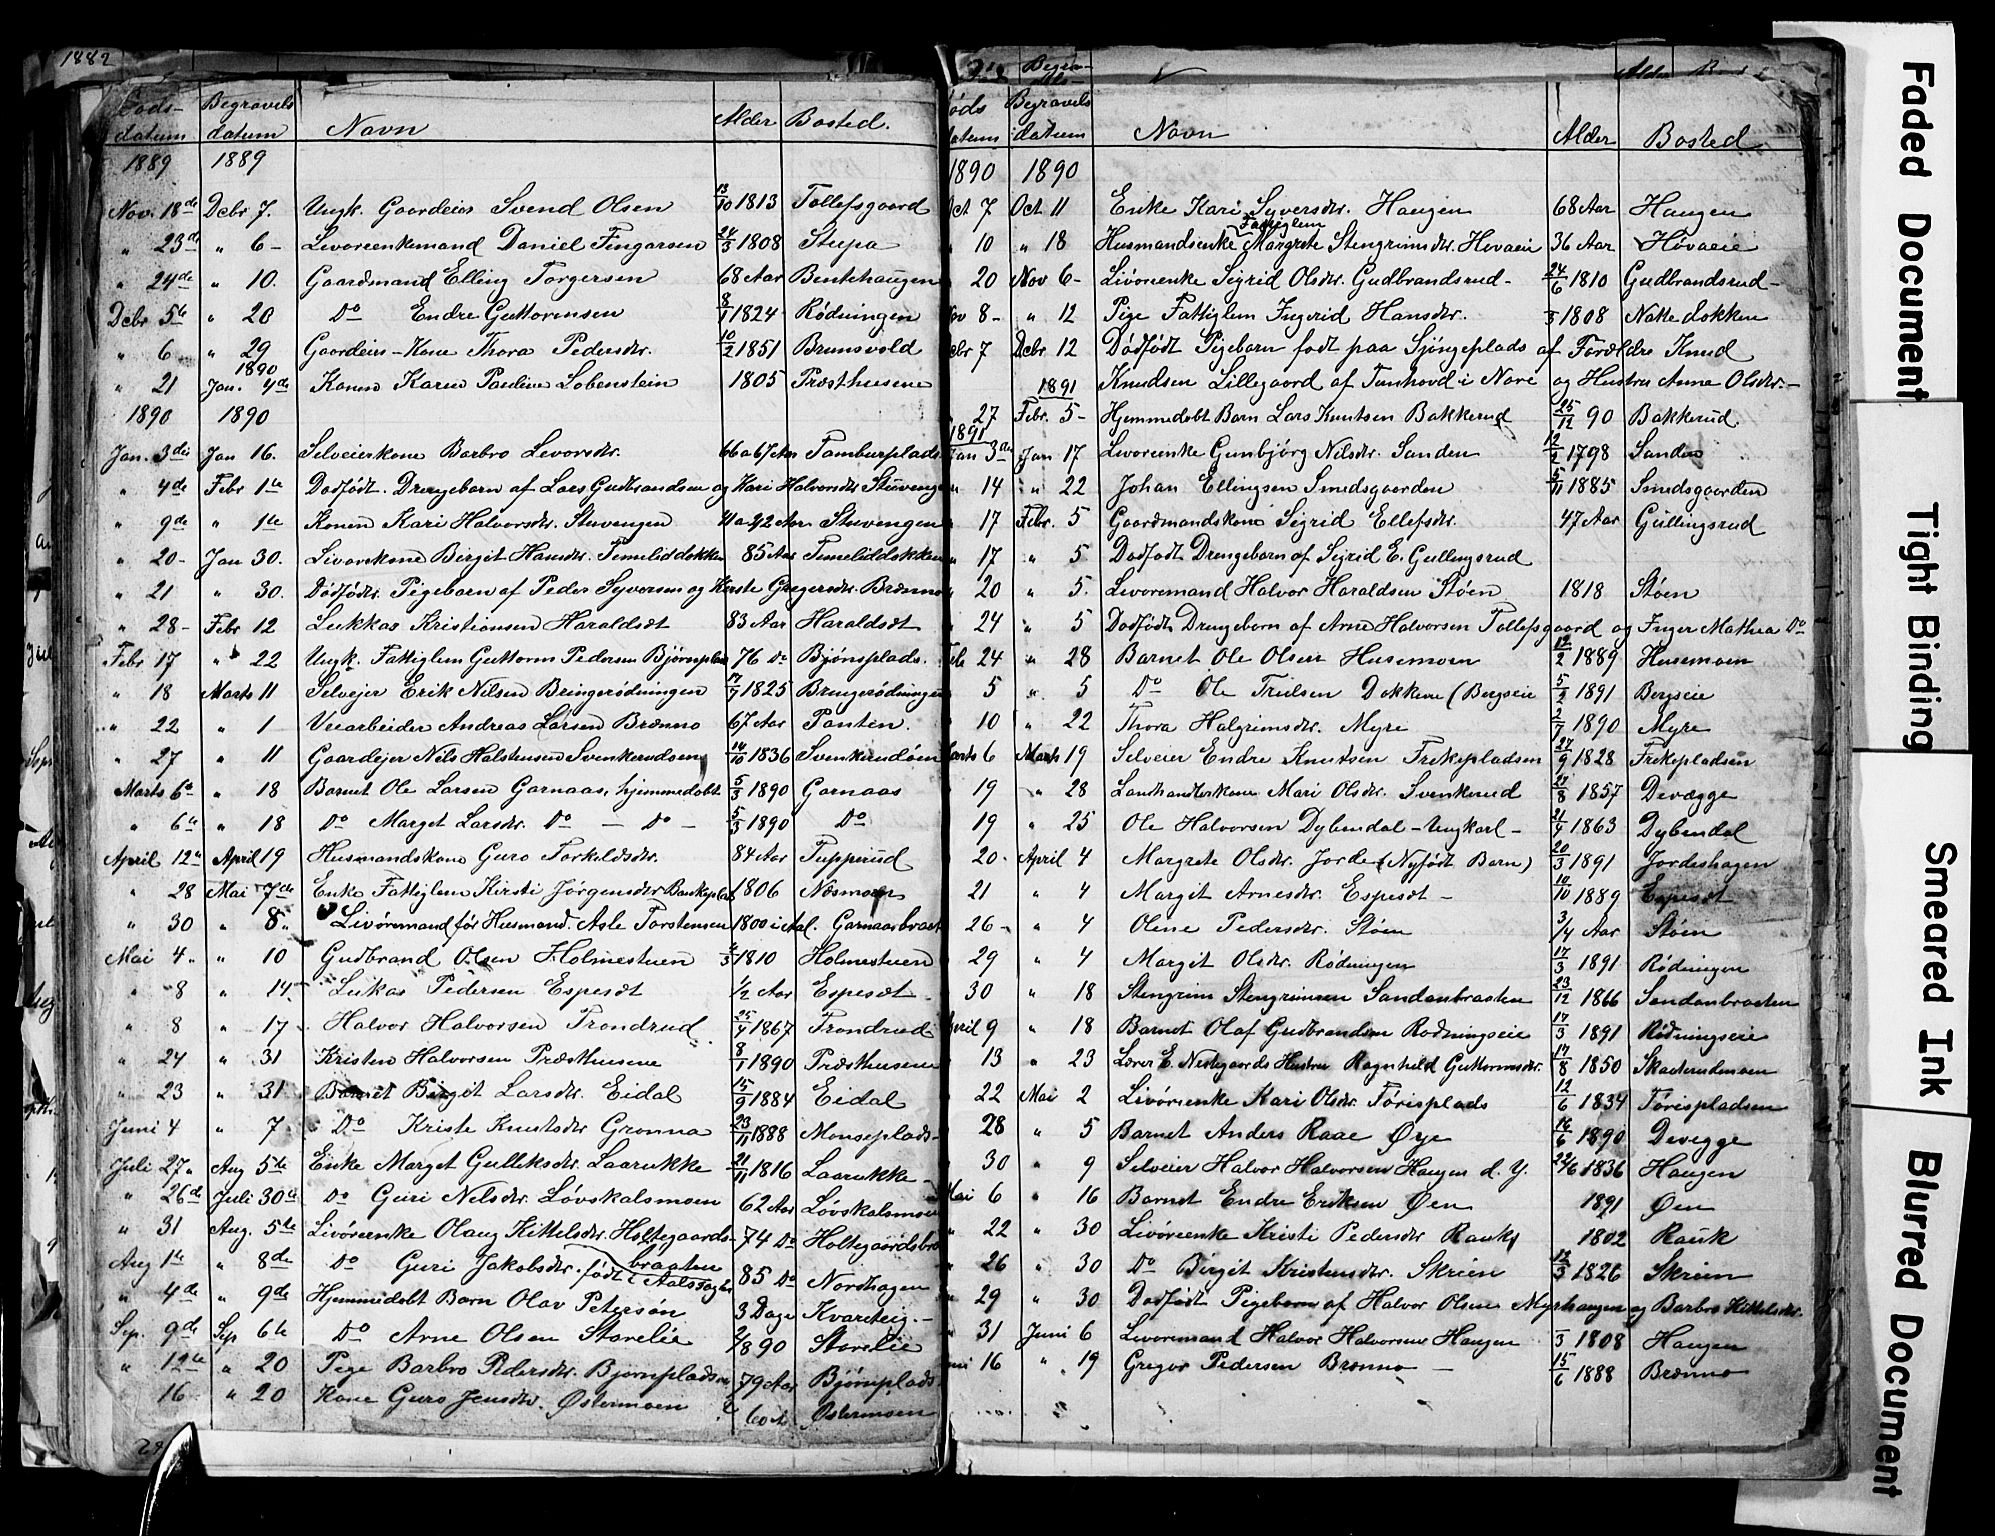 1882
Döds- Begravels
datum datum Navn Alder Bosted.
1889 1889
Nov. 18de Dcbr 7. Ungk. Gaardeier Svend Olsen 13/10 1813 Tollefsgaard
" 23de " 6- Livøreenkemand Daniel Fingarsen 24/3 1808 Steepa
" 24de " 10. Gaardmand Elling Torgersen 68 Aar Bentehaugen
Dcbr 5te " 20 Do Endre Guttormsen 8/1 1824 Rødningen
" 6 " 29 Gaardeier-Kone Thora Pedersdtr. 10/2 1851 Brunsvold
1890
" 21 Jan. 4de Konen Karen Pauline Lobenstein 1805 Præsthusene
1890 1890
Jan. 3die Jan 16. Selveierkone Barbro Levorsdtr. 66 a 67 Aar Tamberplads
" 4de Febr 1te Dødfødt. Drengebarn af Lars Gudbrandsen og Kari Halvorsdtr Stuvengen
" 9de " 1te Konen Kari Halvorsdtr. Stuvengen 41 a 42 Aar Stuvengen
" 20- Jan 30. Livørekone Birgit Hansdtr. Temeliddokken 85 Aar Temeliddokken
" 21 " 30. Dødfødt. Pigebarn af Peder Syversen og Kirste Gregersdtr. Brænno
" 28- Febr 12 Lukkas Kristiansen Haraldset 83 Aar Haraldset
Febr 17 " 22 Ungk. Fattiglem Guttorm Pedersen Bjørnplads 76 Do Bjønsplads.
" 18 Marts 11 Selvejer Erik Nilsen Bringerødningen 17/7 1825 Bringerødningen
" 22 " 1 Veiarbeider Andreas Larsen Brænno 67 Aar Panten.
" 27 " 11 Gaardejer Nils Halstensen Svenkerudsen 14/10 1836 Svenkerudøen
Marts 6te " 18 Barnet Ole Larsen Garnaas, hjemmedøbt 5/3 1890 Garnaas
" 6te " 18 Do Marget Larsdtr. Do — Do — 5/3 1890 Do
April 12te April 19 Husmandskone Guro Torkildsdtr. 84 Aar Tupperud
" 28 Mai 7de Enke Fattiglem Kirsti Jørgensdtr Bankeplads 1806 Næsmoen
" 30 " 8. Livøremand før Husmand. Asle Torstensen 1800 i Aal. Garnaasbraat
Mai 4. " 10 Gudbrand Olsen Holmestuen 1810 Holmestuen
" 8 " 14. Lukas Pedersen Espeset 1/2 Aar Espeset
" 8 " 17 Halvor Halvorsen Trondrud 25/4 1867 Trondrud
" 24 " 31 Kristen Halvorsen Præsthusene 8/1 1890 Præsthusene
" 23 " 31 Barnet Birgit Larsdtr. Eidal 15/9 1884 Eidal
Juni 4 " 7 Do Kriste Knutsdtr Grønna 23/11 1888 Monseplads-
Juli 27. Aug 5te Enke Marget Gulleksdtr. Laarukke 21/11 1816 Laarukke-
" 26de Juli 30te Do Guri Nilsdtr. Løvskalsmoen 62 Aar Løvskalsmoen
" 31 Aug. 5te Livøreenke Olaug Kittelsdtr. Holtegaards- 74 Do Holtegaardsbro
braaten
Aug 1te " 8de Do Guri Jakobsdtr. født i Aals sogn 85 Do Nordhagen
" 4de " 9de Hjemmedøbt Barn Olav Petersøn 3 Dage Kvarteig.-
Sep. 9de Sep 6te Do Arne Olsen Storelie 2/8 90 Storelie
" 12te " 20 Pige Barbro Pedersdtr. Bjørnpladsen 79 Aar Bjørnplads
16 " 20 Kone Guro Jensdtr. Østermoen 60 A Østermoen
Begra- Alder
Døds Begravels
datum datum Navn Alder Bosted
1890 1890
Oct 7 Oct 11 Enke Kari Syversdtr. Haugen 68 Aar Haugen
Fattiglem
" 10 " 18 Husmandsenke Margrete Stengrimsdtr. Hovaeie 36 Aar Høvaeie
20 Nov 6- Livøreenke Sigrid Olsdtr. Gudbrandsrud- 24/6 1810 Gudbrandsrud-
Nov 8- " 12 Pige Fattiglem Ingerid Hansdtr. /3 1808 Nattedokken
Dcbr 7 Dcbr 12 Dødfødt Pigebarn født paa Sjøngeplads af Forældre Knud
1891 Knudsen Lillegaard af Tunhovd i Nore og Hustru Anne Olsdtr.-
27 Febr. 5- Hjemmedøbt Barn Lars Knutsen Bakkerud 25/12 90 Bakkerud.
1891
Jan 3die Jan 17 Livøreenke Gunbjørg Nilsdtr. Sanden 12/2 1798 Sanden
" 14 " 22 Johan Ellingsen Smedsgaarden 5/11 1885 Smedsgaarden
" 17 Febr. 5 Gaardmandskone Sigrid Ellefsdtr. 47 Aar Gullingsrud
" 17 " 5 Dødfødt Drengebarn af Sigrid E. Gullingsrud
" 20 " 5. Livøremand Halvor Haraldsen Støen 1818 Støen
" 24 " 5 Dødfødt Drengebarn af Arne Halvorsen Tollefsgaard og Inger Mathea Do
Feb 24 " 28 Barnet Ole Olsen Husemoen 12/2 1889 Husemoen
5 " 5 Do Ole Truelsen Dokken (Bergseie 5/2 1891 Bergseie
" 10 " 22 Thora Halgrimsdtr. Myre 2/7 1890 Myre
Marts 6 Marts 19 Selveier Endre Knutsen Frekepladsen 27/9 1828 Frekepladsen
19 " 28 Landhandlerkone Mari Olsdtr. Svenkerud 27/8 1857 Devegge
19 " 25 Ole Halvorsen Dybendal - Ungkarl - 21/4 1863 Dybendal
20. April 4 Margrete Olsdtr. Jorde (Nyfødt Barn) 20/3 1891 Jordeshagen
21 " 4 Margit Arnesdtr. Espeset - 10/10 1889 Espeset
26- " 4 Olene Pedersdtr. Støen 3/4 Aar Støen
29 " 4 Margit Olsdtr. Rødningen 17/3 1891 Rødningen
30 " 18 Stengrim Stengrimsen Sandanbraaten 23/12 1866 Sandanbraaten
April 9 " 18 Barnet Olaf Gudbrandsen Rødningseie 17/3 1891 Rødningseie
" 13 " 23 Lærer E. Nestegaards Hustru Ragnhild Guttormsdtr. 17/8 1850 Skaterudmoen
22 Mai 2 Livøreenke Kari Olsdtr. Tørisplads 12/6 1834 Tørispladsen
28 " 5 Barnet Anders Raae Øye 16/6 1890 Devegge
30 " 9 Selveier Halvor Halvorsen Haugen d. Y. 22/6 1836 Haugen
Mai 6 " 16 Barnet Endre Eriksen Øen 1891 Øen
" 22 " 30 Livøreenke Kristi Pedersdtr Rauk 1802 Rauk
" 26 " 30 Do Birgit Kristensdtr. Skrien 13/3 1826 Skrien
29 " 30 Dødfødt Pigebarn af Halvor Olsen Myrhaugen og Barbro Kittelsdtr.
" 31 Juni 6 Livøremand Halvor Halvorsen Haugen /3 1808 Haugen
Juni 16 " 19 Gregor Pedersen Brænno - 15/6 1888 Brænno
Faded Document
Tight Binding
Smeared Ink
Blurred Document